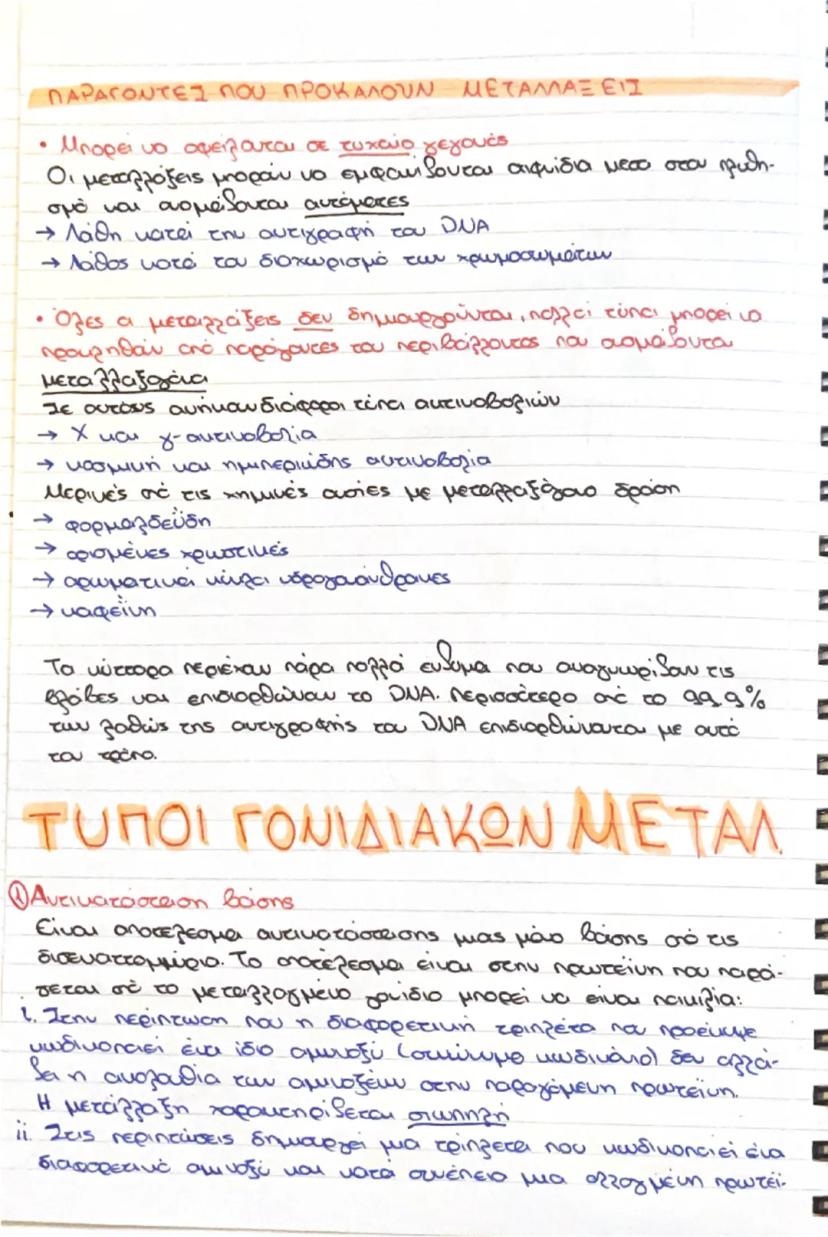 ΠΑΡΑΓΟΝΤΕΣ ΠΟΥ ΠΡΟΚΑΛΟΥΝ ΜΕΤΑΛΛΑΞΕΙΣ
• Μπορεί να οφείλονται σε τυχαίο γεγονός
Οι μεταλλάξεις μπορούν να εμφανίζονται αιφνίδια μέσα στον πληθυ-
σμό και ονομάζονται αυτόματες
→ Λάθη κατά την αντιγραφή του DNA
→ Λάθος κατά του διαχωρισμό των χρωμοσωμάτων
• Όλες οι μεταλλάξεις δεν δημιουργούνται, πολλοί τύποι μπορεί να
προκληθούν από παράγοντες του περιβάλλοντος που ονομάζονται
μεταλλαξογόνοι
Σε αυτούς ανήκουν διάφοροι τύποι ακτινοβολιών
→ Χ και γ-ακτινοβολία
→ κοσμική και ημιπεριώδης ακτινοβολία
Μερικές από τις χημικές ουσίες με μεταλλαξόγονο δράση
→ φορμαλδεΰδη
→ ορισμένες χρωστικές
→ αρωματικοί κύκλοι υδρογονάνθρακες
→ καφεΐνη
Τα κύτταρα περιέχουν πάρα πολλά ένζυμα που αναγνωρίζουν τις
βλάβες και επιδιορθώνουν το DNA. Περισσότερο από το 99.9%
των λαθών της αντιγραφής του DNA επιδιορθώνονται με αυτό
τον τρόπο.
ΤΥΠΟΙ ΓΟΝΙΔΙΑΚΩΝ ΜΕΤΑΛ.
① Αντικατάσταση βάσης
Είναι αποτέλεσμα αντικατάστασης μιας μόνο βάσης από τις
δισεκατομμύρια. Το αποτέλεσμα είναι στην πρωτεΐνη που παρά-
γεται από το μεταλλαγμένο γονίδιο μπορεί να είναι ποικιλία:
i. Στην περίπτωση που η διαφορετική τριπλέτα που προέκυψε
κωδικοποιεί ένα ίδιο αμινοξύ (συνώνυμο κωδικόνιο) δεν αλλά-
ζει η ακολουθία των αμινοξέων στην παραγόμενη πρωτεΐνη.
Η μετάλλαξη χαρακτηρίζεται σιωπηλή
ii. Στις περιπτώσεις δημιουργεί μια τριπλέτα που κωδικοποιεί ένα
διαφορετικό αμινοξύ και κατά συνέπεια μια αλλαγμένη πρωτεΐ-